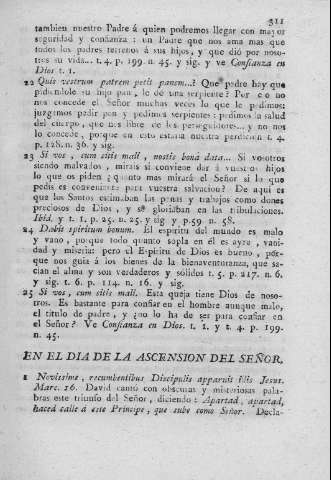 311
tambien nuestro Padre á quien podremos llegar con mayor
seguridad y confianza : un Padre que nos ama mas que
todos los padres terrenos á sus hijos, y que dió por noso-
tros su vida... t. 4. p. 199. n. 45. y sig. y ve Confianza en
Dios t. 1.
22 Quis vestrum patrem petit panem...? Que padre hay que
pidiendole su hijo pan, le dé una serpiente? Por eso no
nos concede el Señor muchas veces lo que le pedimos:
juzgamos pedir pan y pedimos serpientes : pedimos la salud
del cuerpo, que nos libre de los perseguidores... y no nos
lo concede, porque en esto estaria nuestra perdicion t. 4.
p. 128. n. 36. y sig.
23 Si vos, cum sitis mali, nostis bona data... Si vosotros
siendo malvados, mirais si conviene dar á vuestros hijos
lo que os piden ¿quanto mas mirará el Señor si lo que
pedis es conveniente para vuestra salvacion? De aqui es
que los Santos estimaban las penas y trabajos como dones
preciosos de Dios, y se gloriaban en las tribulaciones.
Ibid. y t. 1. p. 25. n. 25. y sig y p. 59. n. 58.
24 Dabit spiritum bonum. El espiritu del mundo es malo
y vano, porque todo quanto sopla en él es ayre, vani-
dad y miseria: pero el Espiritu de Dios es bueno, por-
que nos guia á los bienes de la bienaventuranza, que sa-
cian el alma y son verdaderos y sólidos t. 5. p. 217. n. 6.
y sig. t. 6. p. 114. n. 16. y sig.
25 Si vos, cum sitis mali. Esta queja tiene Dios de noso-
tros. Es bastante para confiar en el hombre aunque malo,
el titulo de padre, y ¿no lo ha de ser para confiar en
el Señor? Ve Confianza en Dios. t. 1. y t. 4. p. 199.
n. 45.
EN EL DIA DE LA ASCENSION DEL SEÑOR.
1 Novissime, recumbentibus Discipulis apparuit illis Jesus.
Marc. 16. David cantó con obscuras y misteriosas pala-
bras este triunfo del Señor, diciendo : Apartad, apartad,
haced calle á este Principe, que sube como Señor. Decla-